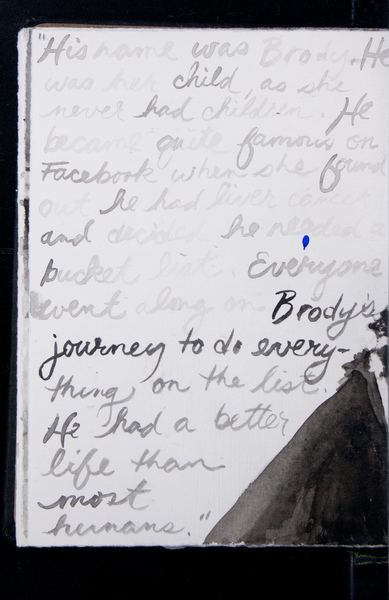 "His name was Brody. He
was her child, as she
never had children. He
became quite famous on
Facebook when she found
out he had liver cancer
and decided he needed a
bucket list. Everyone
went along on Brody's
journey to do every-
thing on the list.
He had a better
life than
most
humans."